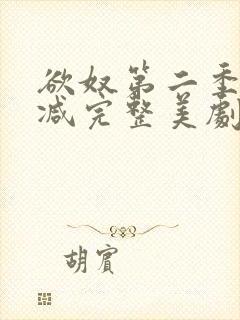 欲奴第二季
减完整美劇
胡賓